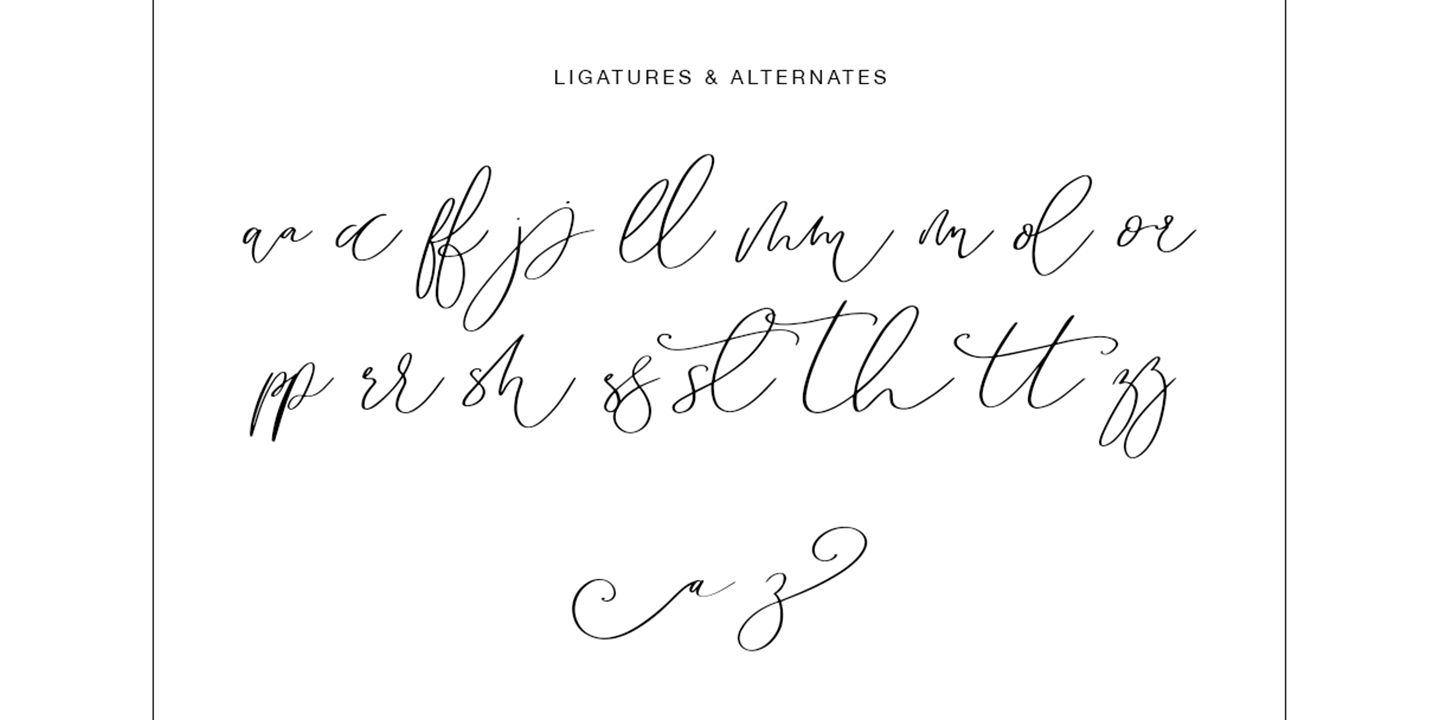 LIGATURES & ALTERNATES
aa cc ff jj ll mm nn ol or
pp rr sh ss st th tt zz
a z